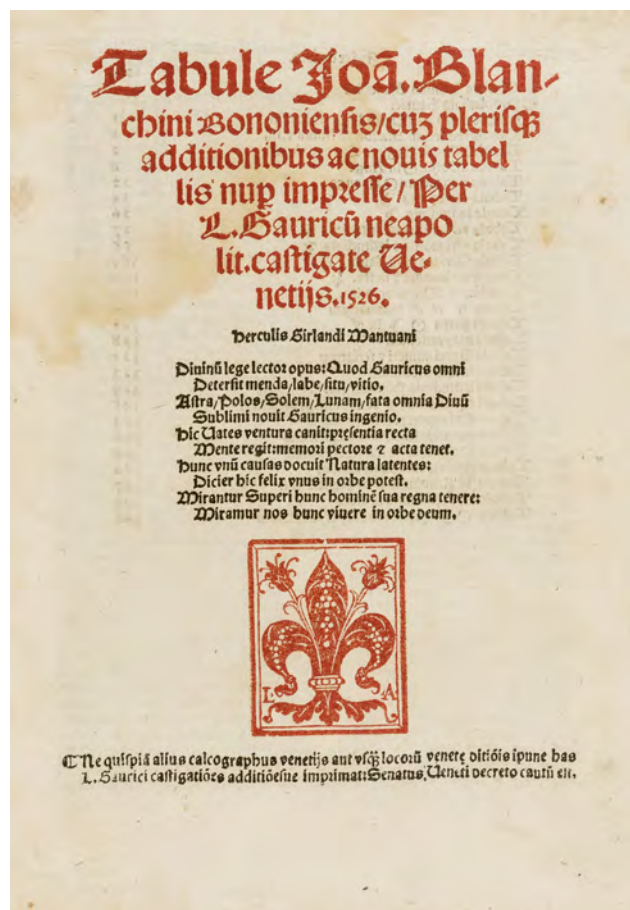 Tabule Joā. Blan-
chini Bononiensis/cuȝ plerisqȝ
additionibus ac nouis tabel
lis nuꝑ impresse/ Per
L. Gauricū neapo
lit. castigate Ue-
netijs. 1526.
Herculis Girlandi Mantuani
Diuinū lege lector opus: Quod Gauricus omni
Detersit menda/labe/situ/vitio.
Astra/Polos/Solem/Lunam/fata omnia Diuū
Sublimi nouit Gauricus ingenio.
Hic Uates ventura canit: pręsentia recta
Mente regit: memori pectore ⁊ acta tenet.
Hunc vnū causas docuit Natura latentes:
Dicier hic felix vnus in orbe potest.
Mirantur Superi hunc hominē sua regna tenere:
Miramur nos hunc viuere in orbe deum.
L A
¶ Ne quispiā alius calcographus venetijs aut vsqȝ locorū venetę ditiōis ipune has
L. Gaurici castigatiōes additiōesue imprimat: Senatus Ueneti decreto cautū est.